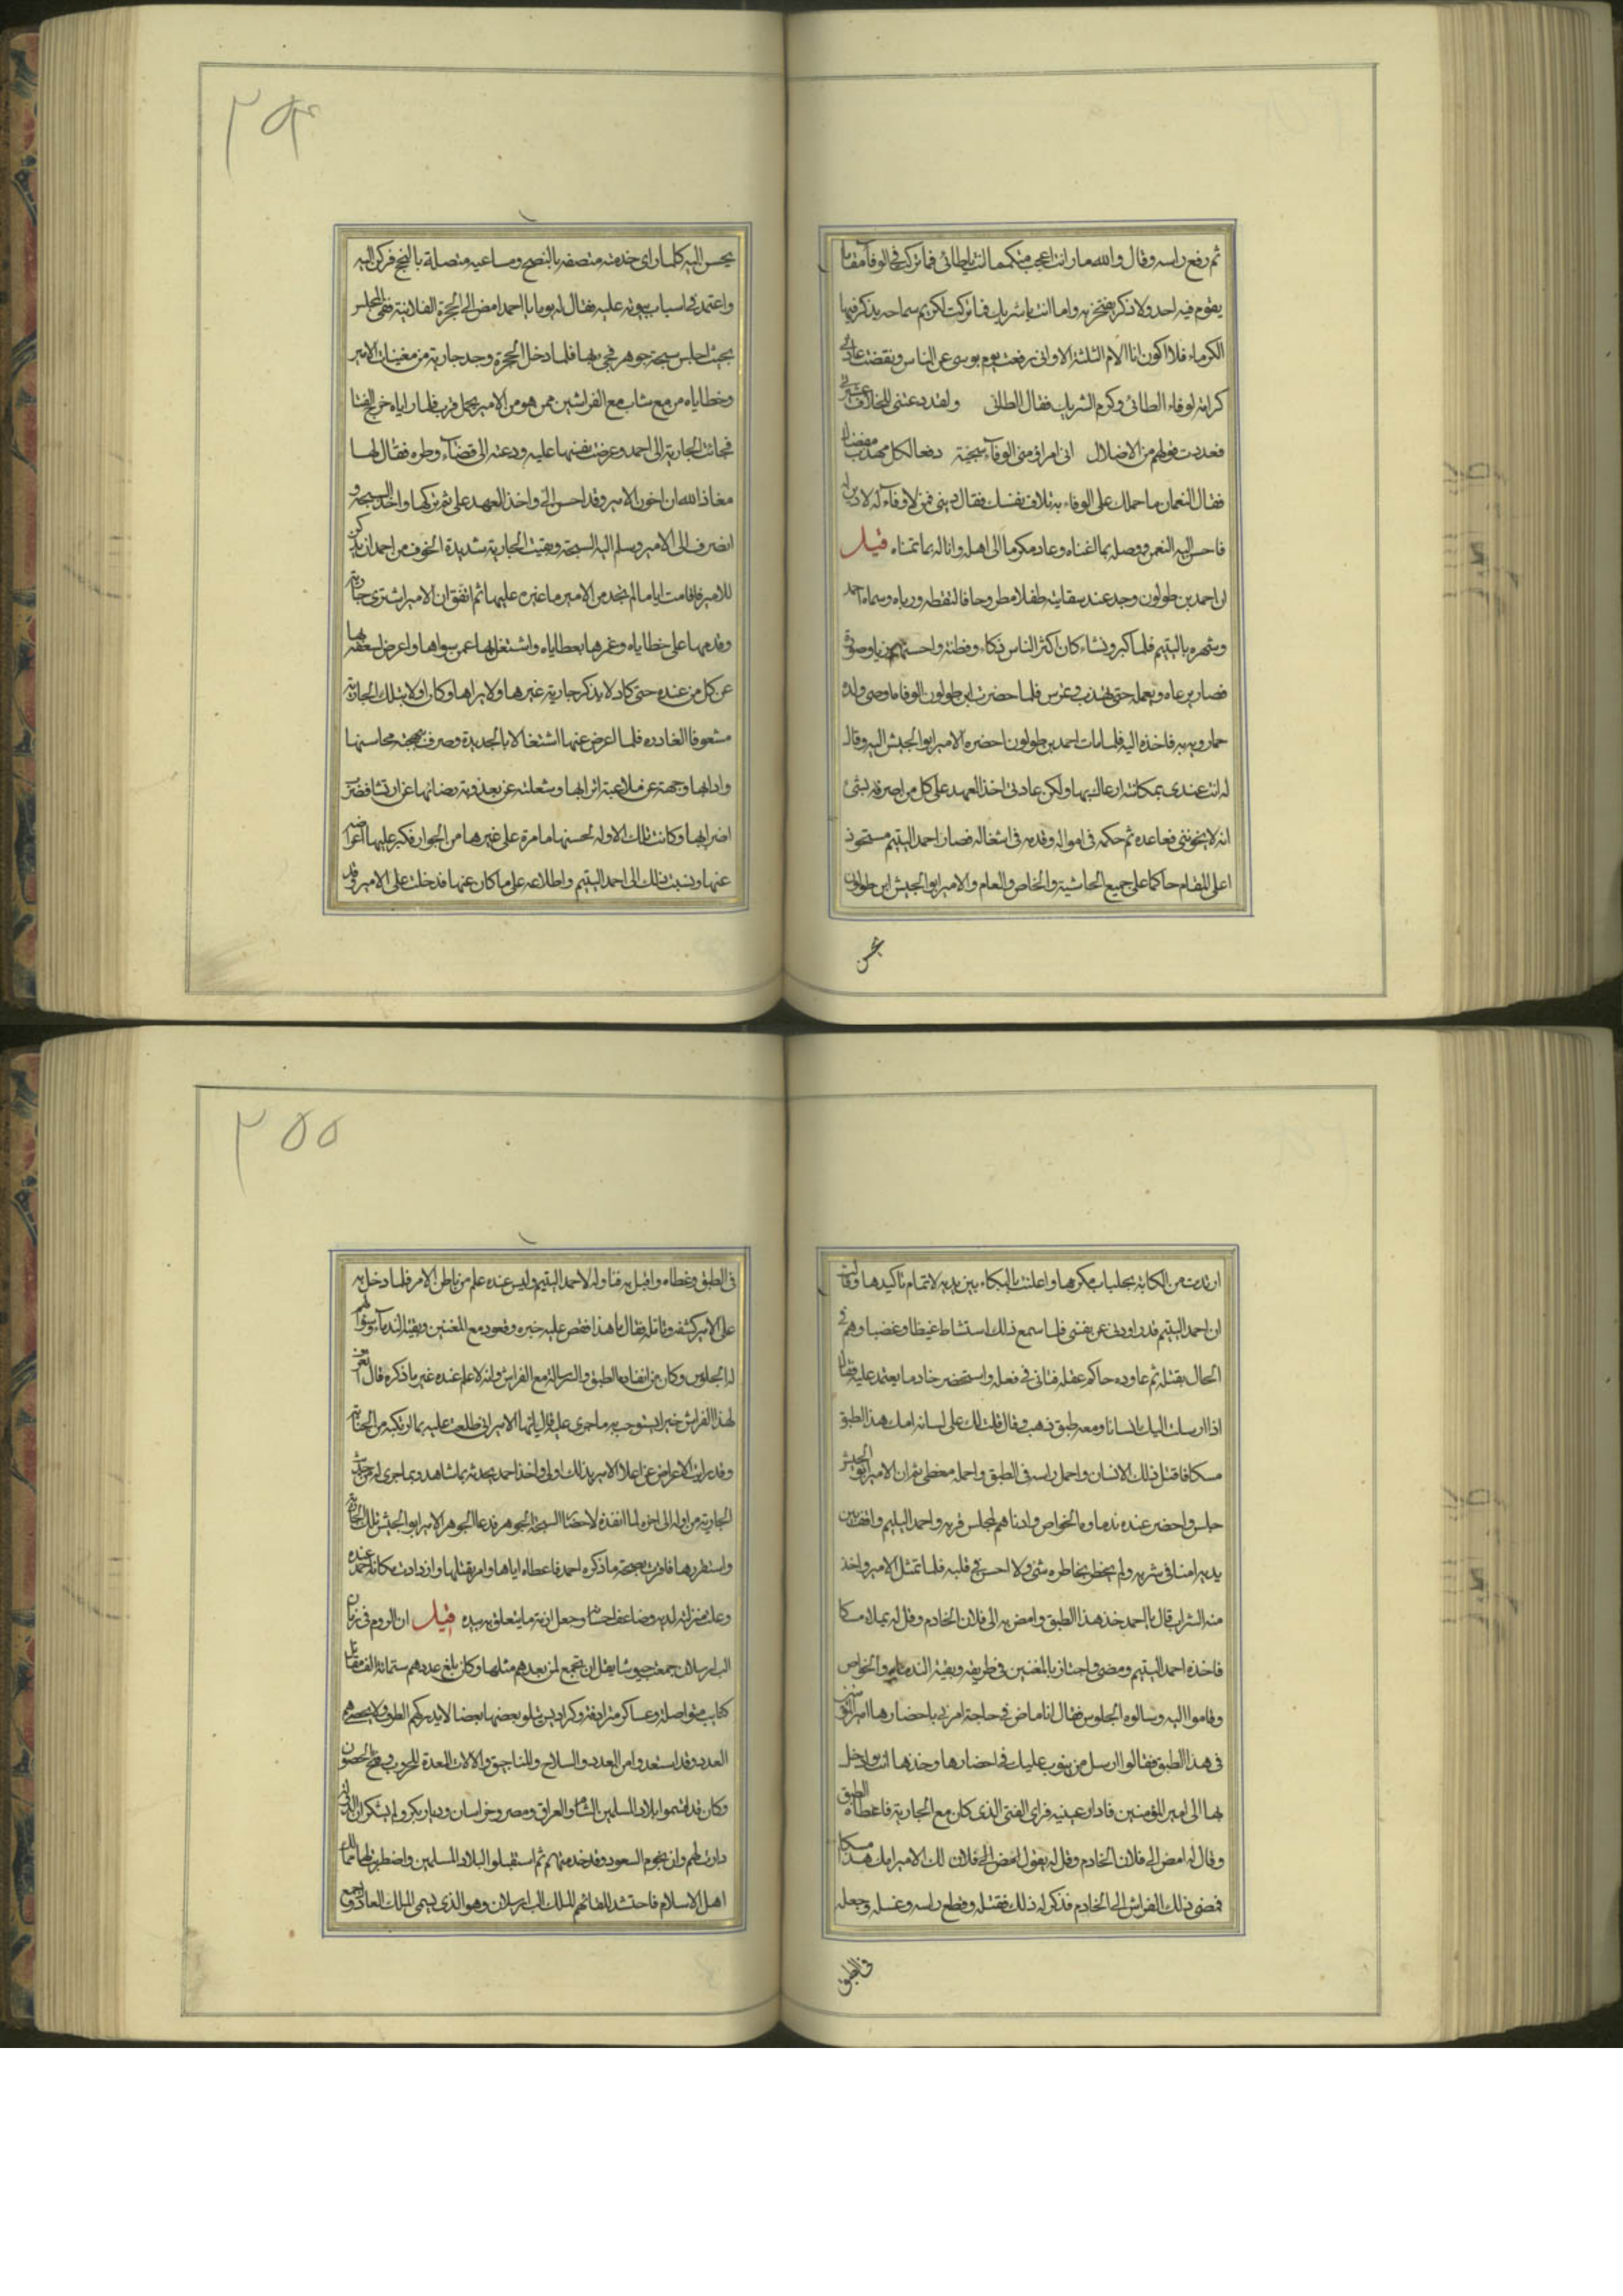 ثم رفع راسه وقال والله ما رايت اعجب منكما انت يا طائى فما تركت فى الوفاء مقاما
يقوم فيه احد ولا ذكر يفتخر به واما انت يا شريك فما تركت لكريم سماحه يذكر فيها
الكرماء فلا اكون انا الام الثلثه الا وانى رفعت يوم بوسى عن الناس ونقضت عادتى
كرامة لوفاء الطائى وكرم الشريك فقال الطائى ولقد دعتنى للخلاف عشيرتى
فعددت قولهم من الاضلال انى امرؤ منى الوفاء سجية
فقال النعمان ما حملك على الوفاء به تلاف نفسك فقال دينى فمن لا وفاء له لا دين له
فاحسن اليه النعمن ووصله بما اغناه وعاد مكرما الى اهله واناله بما تمناه قيل
ان احمد بن طولون وجد عند سقايته طفلا مطروحا فالتقطه ورباه وسماه احمد
وشهره باليتيم فلما كبر ونشاء كان اكثر الناس ذكاء وفطنة واحسنهم زيا وصورة
فصار يرعاه ويعمله حتى تهذب وتمرس فلما حضرت ابن طولون الوفاه اوصى ولده
خمارويه به فاخذه اليه فلما مات احمد بن طولون احضره الامير ابو الجيش اليه وقال
له انت عندى بمكانة ارعاك بها ولكن عادتى اخذ العهد على كل من اصرفه لشئ
انه لا يخوننى فعاهده ثم حكمه فى امواله وقدمه فى اشغاله فصار احمد اليتيم مستحوذ
اعلى المقام حاكما على جميع الحاشية والخاص والعام والامير ابو الجيش ابن طولون
يحسن
يحسن اليه كلما راى خدمته متصفه بالنصح ومساعيه متصلة بالنجح فركن اليه
واعتمد فى اسباب بيوته عليه فقال له يوما يا احمد امض الى الحجرة الفلانية ففى المجلس
بحيث اجلس سبحة جوهر فجئ بها فلما دخل الحجرة وجد جارية من مغنيات الامير
وحظاياه مع شاب مع الفراشين ممن هو من الامير بمحل قرب فلما راياه خرج الفتا
فجائت الجارية الى احمد وعرضت نفسها عليه ودعته الى قضاء وطره فقال لها
معاذ الله ان اخون الامير وقد احسن الى واخذ العهد على ثم تركها واخذ السبحة و
انصرف الى الامير وسلم اليه السبحة وبقيت الجارية شديدة الخوف من احمد ان يذكر
للامير فاقامت اياما لم تجد من الامير ما غيره عليها ثم اتفق ان الامير اشترى جارية
وقدمها على حظاياه وغمرها بعطاياه واشتغل بها عمن سواها واعرض لشغفه بها
عن كل من عنده حتى كاد لا يذكر جارية غيرها ولا يراها وكان اولا بتلك الجارية
مشعوفا فلما اعرض عنها اشتغالا بالجديدة وصرف بهجته محاسنها
وكانت تلك الاوله لحسنها امامرة على غيرها من الجوار فكبر عليها اعراضه
عنها ونسبت ذلك الى احمد اليتيم واطلاعه على ما كان عنها فدخلت على الامير وقد
٢٥٤
ارتدت من الكابة بجلباب مكرها واعلنت بالبكاء بين يديه لاتمام تاكيدها وقالت
ان احمد اليتيم قد راودنى عن نفسى فلما سمع ذلك استشاط غيظا وغضبا وهم فى
الحال بقتله ثم عاوده حاكم عقله فتانى فى فعله واستحضر خادما يعتمد عليه وقال
اذا ارسلت اليك انسانا ومعه طبق ذهب وقال قلت لك على لسانه املا هذا الطبق
مسكا فاقتل ذلك الانسان واحمل راسه فى الطبق واحمله مغطى ثم ان الامير ابو الجيش
جلس واحضر عنده ندماوه الخواص وادناهم لمجلس قربه واحمد اليتيم واقف بين
يديه امنا فى سربه ولم يخطر بخاطره شئ ولا احس فى قلبه فلما تمثل الامير واخذ
منه الشراب قال يا احمد خذ هذا الطبق وامض به الى فلان الخادم وقل له يملاه مسكا
فاخذه احمد اليتيم ومضى واجتاز بالمغنين فى طريقه وبقية الندماء والخواص
وقاموا اليه وسالوه الجلوس فقال انا ماض فى حاجة امرنى باحضارها الامير
فى هذا الطبق فقالوا ارسل من ينوب عليك فى احضارها وخذها انت وادخل
بها الى امير المؤمنين فادار عينيه فراى الفتى الذى كان مع الجارية فاعطاه الطبق
وقال له امض الى فلان الخادم وقل له يقول لك الامير املا هذا مسكا
فمضى ذلك الفراش الى الخادم فذكر له ذلك فقتله وقطع راسه وغسله وجعله
فى الطبق
فى الطبق وغطاه واقبل به فناوله لاحمد اليتيم وليس عنده علم من باطن الامر فلما دخل به
على الامير كشفه وتامله فقال ما هذا فقص عليه خبره وقعوده مع المغنين وبقية الندماء وسؤالهم
له الجلوس وما كان من انفاذه الطبق والرسالة مع الفراش وانه لا علم عنده غير ما ذكره قال اتعرف
لهذا الفراش خبرا يستوجب به ما جرى عليه قال ايها الامير انى طلعت عليه بما ارتكبه من الخيانة
وقد رايت الاعراض عن اعلام الامير بذلك اولى واخذ احمد يحدثه بما شاهد وما جرى له من حديث
الجارية من اوله الى اخره لما انفذه لاحضار السبحة الجوهر فدعا الامير ابو الجيش تلك الجارية
واستقررها فاقرت بصحة ما ذكره احمد فاعطاه اياها وامر بقتلها وازدادت مكانة احمد عنده
وعلت منزلته لديه وضاعف احسانه وجعل ازمة ما يتعلق به بيده قيل ان الروم فى زمان
الب ارسلان جمعت جيوشا يقل ان تجمع لمن بعدهم مثلها وكان بلغ عددهم ستمائة الف مقاتل
كتايب متواصله وعساكر مترادفة وكراديس يتلو بعضها بعضا لا يدركهم الطرف ولا يحصيهم
العدد وقد استعدوا من العدد والسلاح والمناجيق والالات المعدة للحروب وفتح الحصون
وكان قد قسموا بلاد المسلمين الشام والعراق ومصر وخراسان وديار بكر ولم يشكوا ان
دارت لهم وان نجوم السعود وقد خدمتهم ثم استقبلوا البلاد المسلمين واضطربت لها ممالك
اهل الاسلام فاحتشد للقائهم الملك الب ارسلان وهو الذى يسمى الملك العادل وجمع
٢٥٥